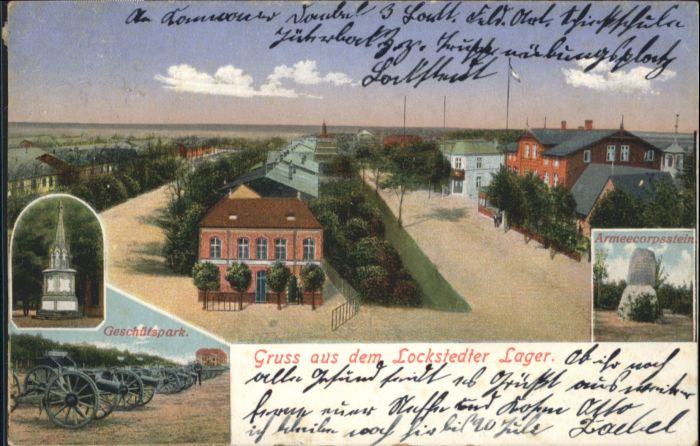 An Kanonier Daubel 3 Batt. Feld. Art. Schießschule
Jüterbog zz. Truppenübungsplatz
Lockstedt
Armeecorpsstein
Geschützpark.
Gruss aus dem Lockstedter Lager.
Ob ihr noch
alle Gesund seid es Grüßt aus weiter
ferne euer Neffe und Otto
ich bleibe noch hir bis 20 Juli